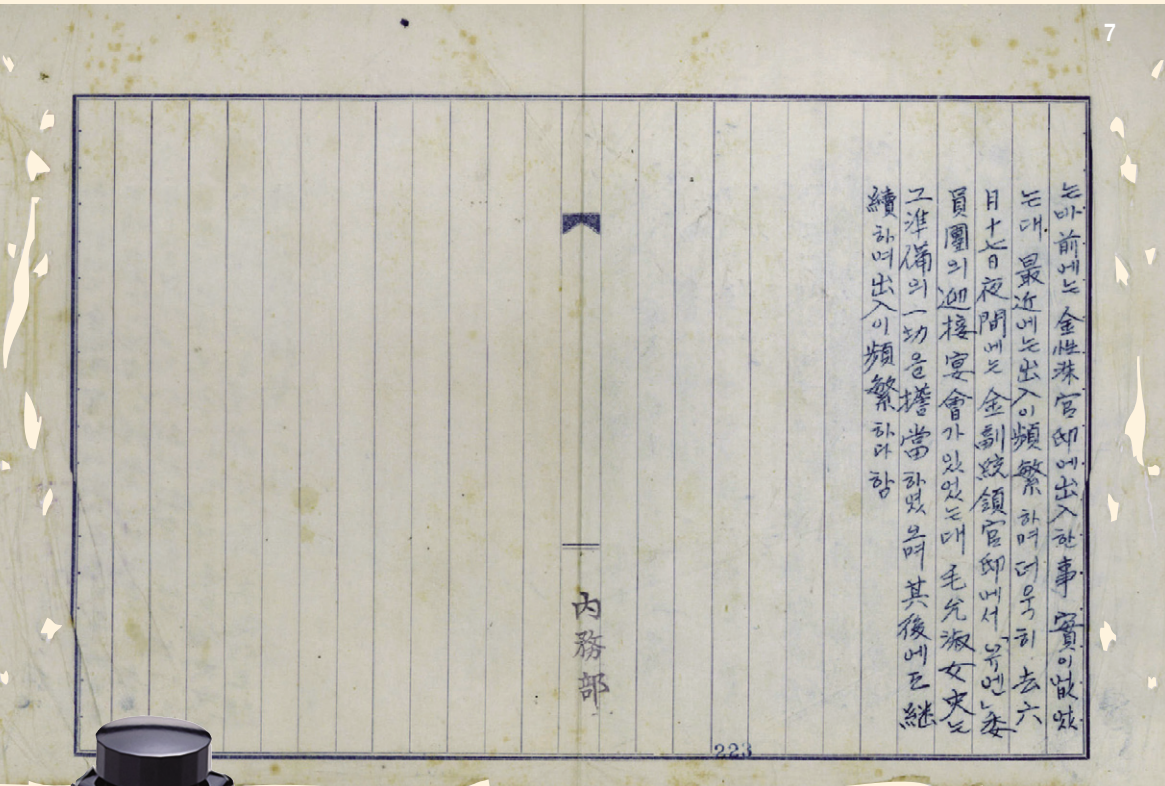 7
는바 前에는 金性洙官邸에 出入한 事實이 없었
는대. 最近에는 出入이 頻繁하며 더욱히 去六
月十七日 夜間에는 金副統領官邸에서 「유엔」委
員團의 迎接宴會가 있었는대 毛允淑女史는
그 準備의 一切을 擔當하였으며 其後에도 継
續하며 出入이 頻繁하다 함
內務部
223